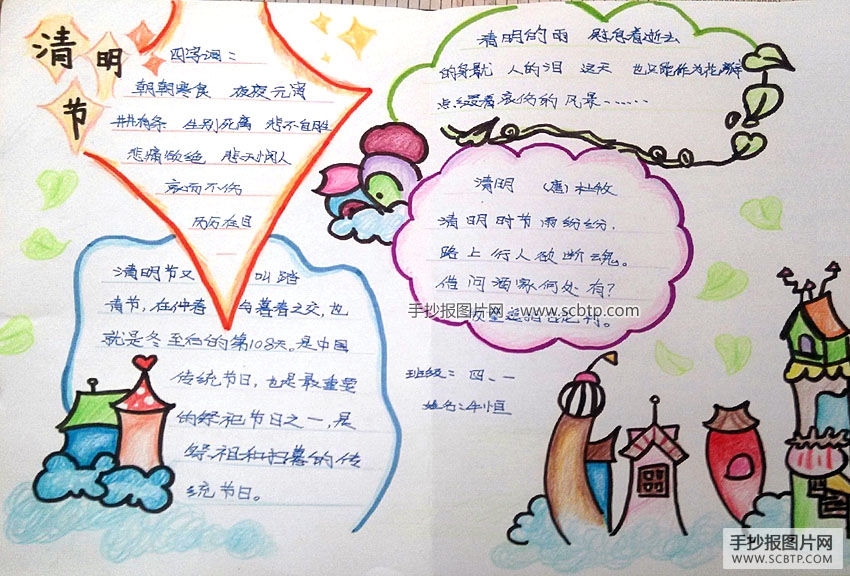 清明节
四字词：
朝朝寒食 夜夜元宵
井井有条 生别死离 悲不自胜
悲痛欲绝 悲天悯人
哀而不伤
历历在目
清明节又 叫踏
青节，在仲春 与暮春之交，也
就是冬至后的第108天。是中国
传统节日，也是最重要
的祭祀节日之一，是
祭祖和扫墓的传
统节日。
清明的雨 慰息着逝去
的身躯 人的泪 这天 也只能作为
点缀着哀伤的风景……
清明 （唐）杜牧
清明时节雨纷纷，
路上行人欲断魂。
借问酒家何处有？
手抄报图片网：www.scbtp.com
班级：四、一
姓名：牛恒
手抄报图片网
WWW.SCBTP.COM